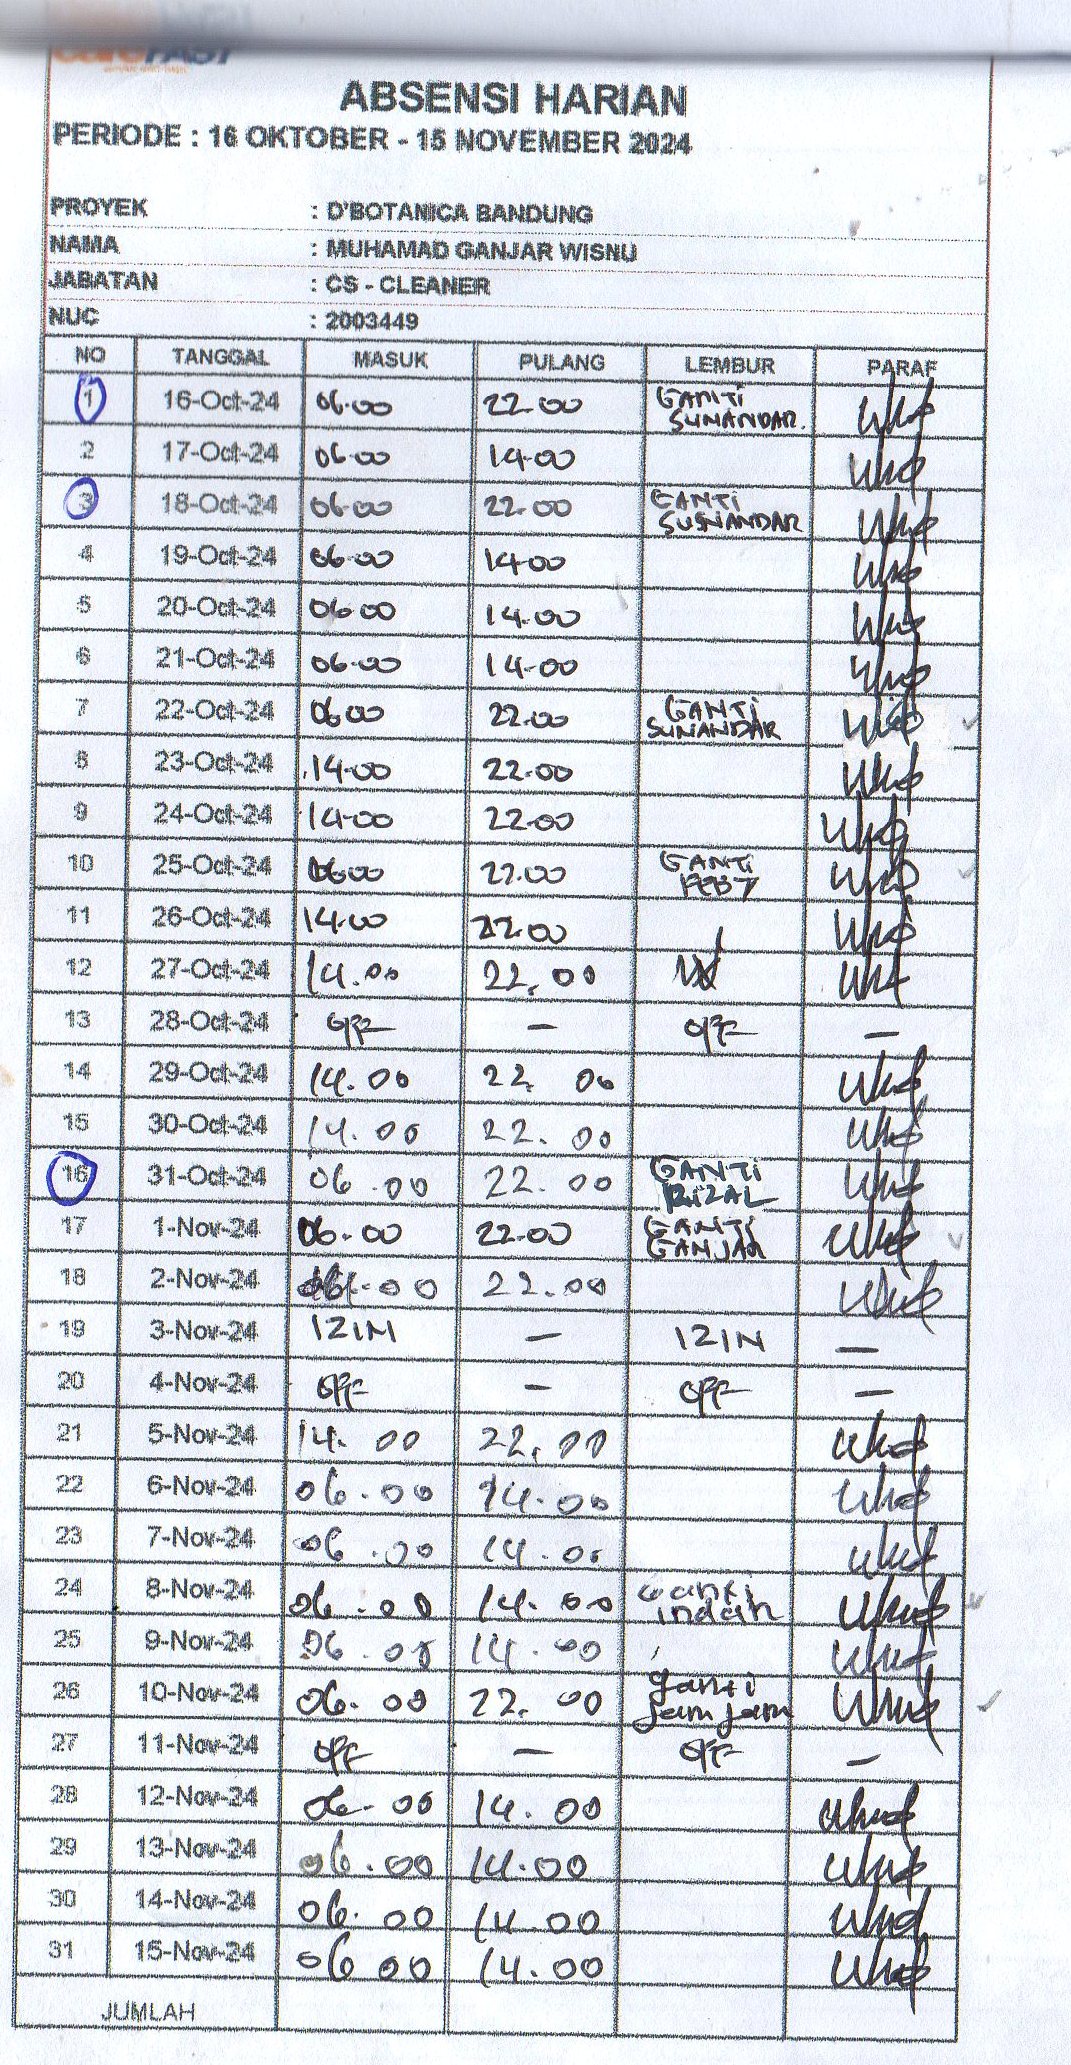 ABSENSI HARIAN
PERIODE : 16 OKTOBER - 15 NOVEMBER 2024
PROYEK : D'BOTANICA BANDUNG
NAMA : MUHAMAD GANJAR WISNU
JABATAN : CS - CLEANER
NUC : 2003449
NO TANGGAL MASUK PULANG LEMBUR PARAF
1 16-Oct-24 06.00 22.00 GANTI SUNANDAR.
2 17-Oct-24 06.00 14.00
3 18-Oct-24 06.00 22.00 GANTI SUNANDAR
4 19-Oct-24 06.00 14.00
5 20-Oct-24 06.00 14.00
6 21-Oct-24 06.00 14.00
7 22-Oct-24 06.00 22.00 GANTI SUNANDAR
8 23-Oct-24 14.00 22.00
9 24-Oct-24 14.00 22.00
10 25-Oct-24 06.00 22.00 GANTI
11 26-Oct-24 14.00 22.00
12 27-Oct-24 14.00 22.00
13 28-Oct-24 OFF — OFF —
14 29-Oct-24 14.00 22.00
15 30-Oct-24 14.00 22.00
16 31-Oct-24 06.00 22.00 GANTI RIZAL
17 1-Nov-24 06.00 22.00 GANTI GANJAR
18 2-Nov-24 22.00
19 3-Nov-24 IZIN — IZIN —
20 4-Nov-24 OFF — OFF —
21 5-Nov-24 14.00 22.00
22 6-Nov-24 06.00 14.00
23 7-Nov-24 06.00 14.00
24 8-Nov-24 06.00 14.00 Ganti indah
25 9-Nov-24 06.00 14.00
26 10-Nov-24 06.00 22.00 ganti Jam Jam
27 11-Nov-24 OFF — OFF —
28 12-Nov-24 06.00 14.00
29 13-Nov-24 06.00 14.00
30 14-Nov-24 06.00 14.00
31 15-Nov-24 06 00 14.00
JUMLAH